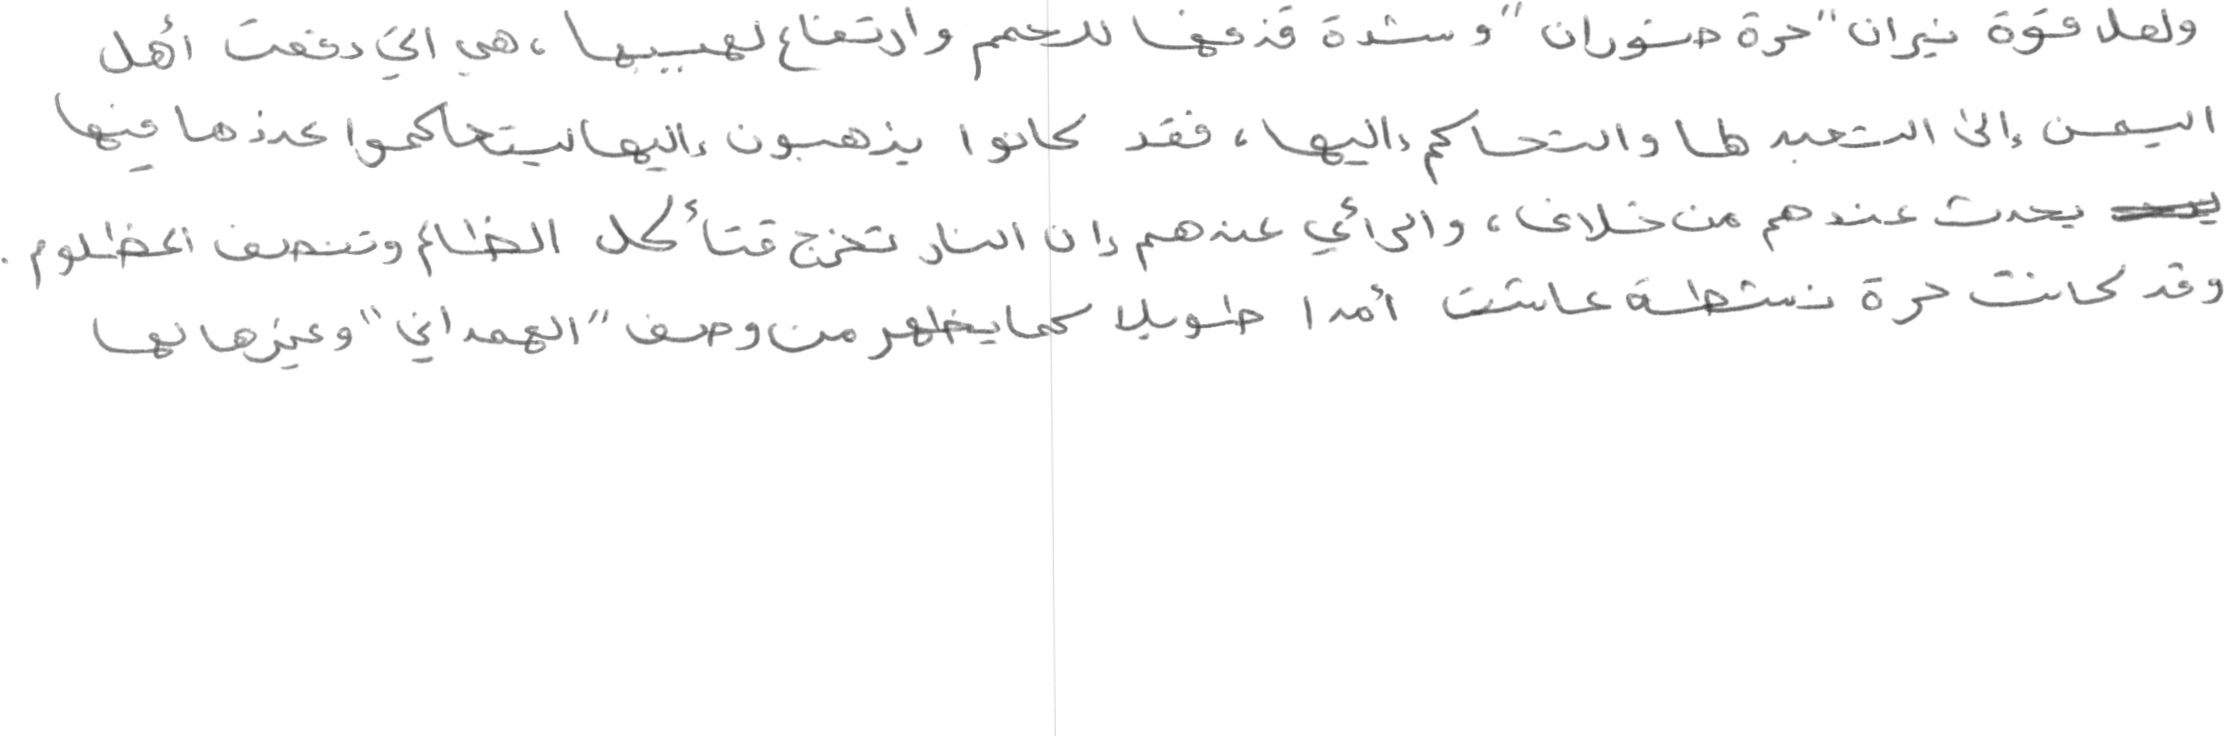 ولعل قوة نيران "حرة ضوران" وشدة قذفها للحمم وارتفاع لهيبها، هي التي دفعت أهل
اليمن إلى التعبد لها والتحاكم إليها، فقد كانوا يذهبون إليها ليتحاكموا عندها فيها
يحدث عندهم من خلاف، والرأي عندهم إن النار تخرج فتأكل الظالم وتنصف المظلوم.
وقد كانت حرة نشطة عاشت أمدا طويلا كما يظهر من وصف "الهمداني" وغيرها لها